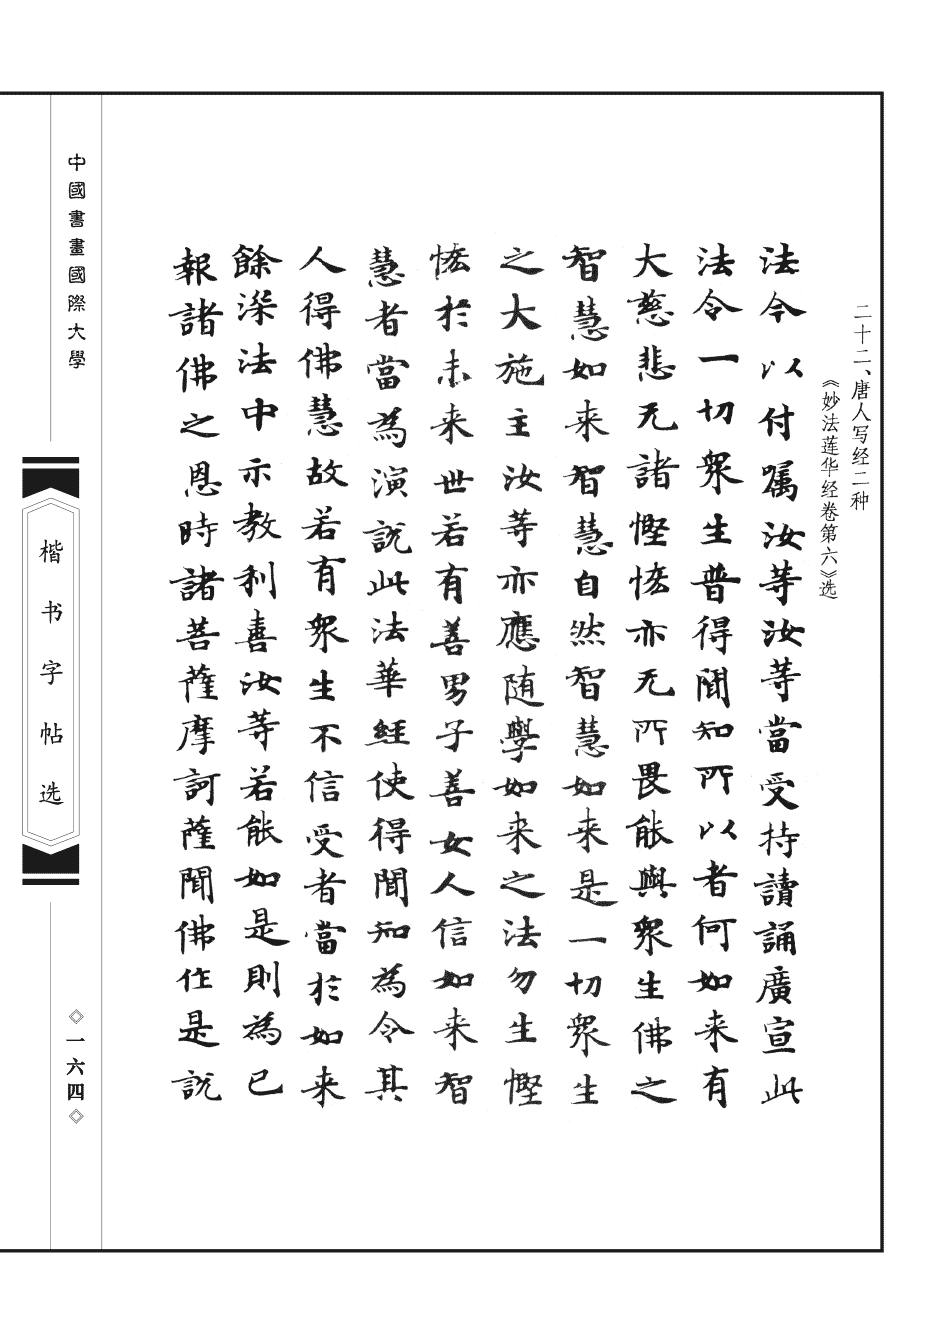 二十二、唐人写经二种
《妙法莲华经卷第六》选
法今以付嘱汝等汝等當受持讀誦廣宣此
法令一切衆生普得聞知所以者何如来有
大慈悲无諸慳悋亦无所畏能與衆生佛之
智慧如来智慧自然智慧如来是一切衆生
之大施主汝等亦應随學如来之法勿生慳
悋於未来世若有善男子善女人信如来智
慧者當為演說此法華經使得聞知為令其
人得佛慧故若有衆生不信受者當於如来
餘深法中示教利喜汝等若能如是則為已
報諸佛之恩時諸菩薩摩訶薩聞佛作是說
中國書畫國際大學
楷书字帖选
◇一六四◇